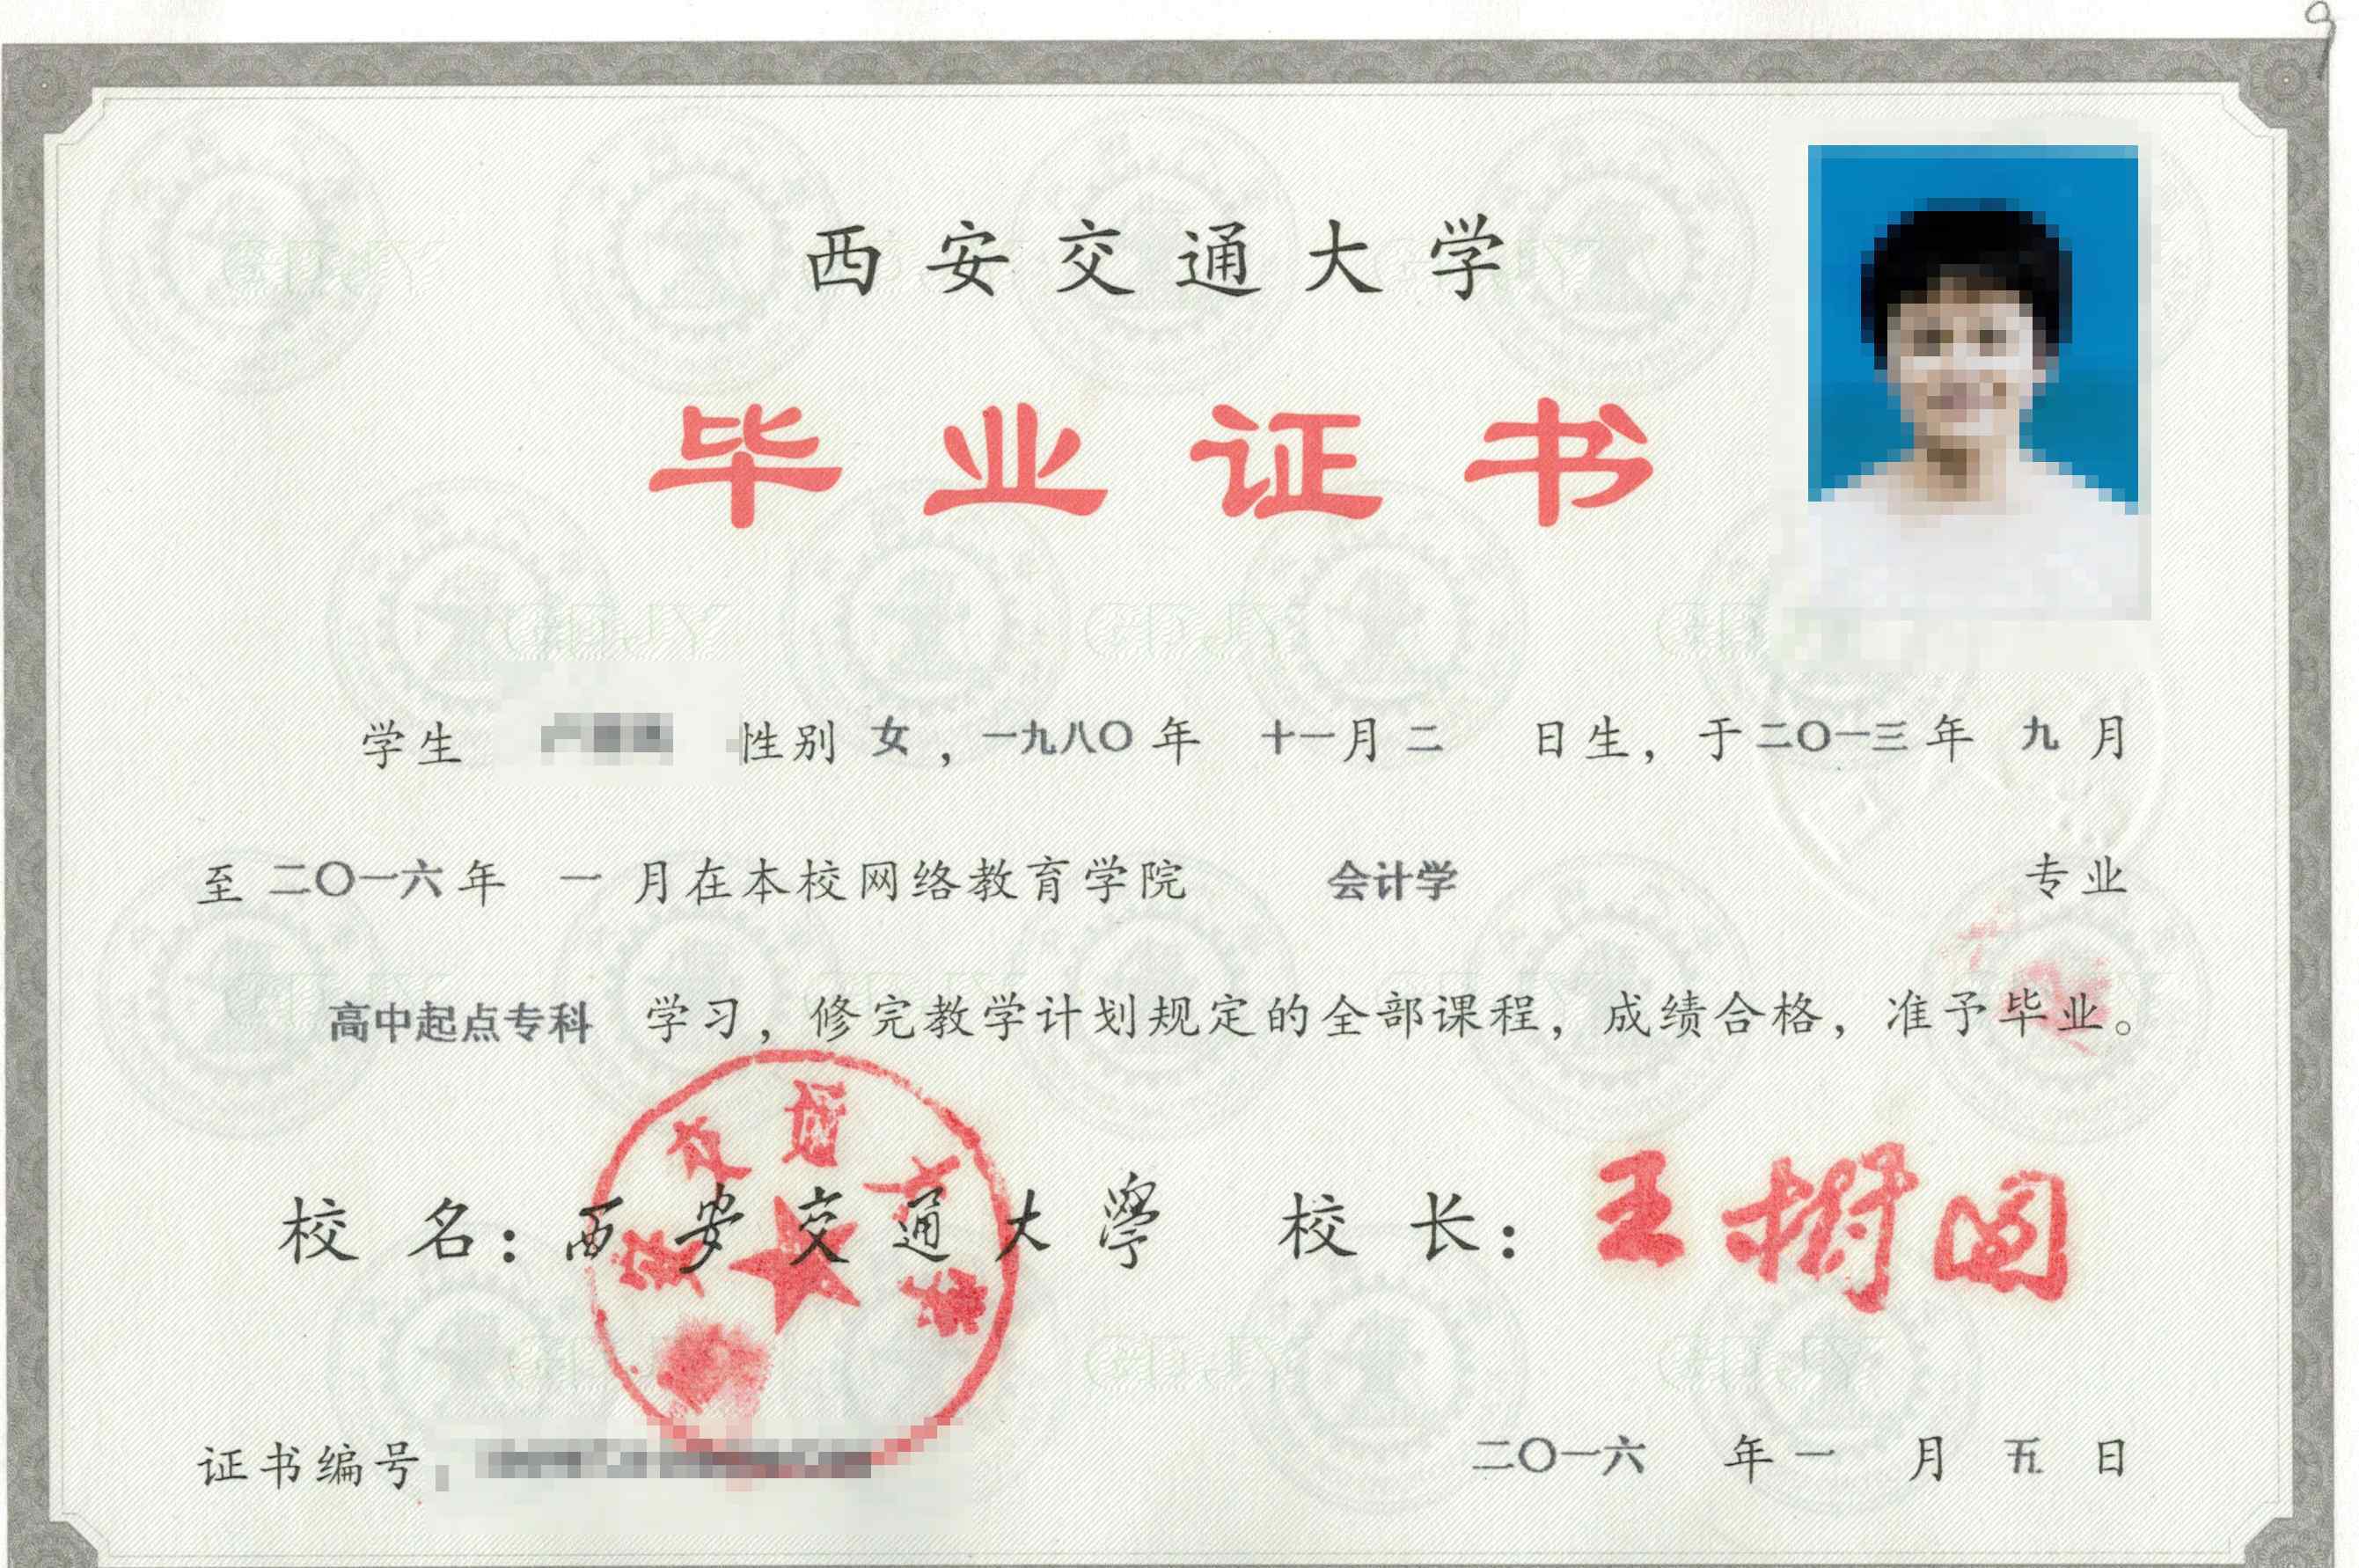 西安交通大学
毕业证书
学生 性别 女，一九八〇年 十一月二 日生，于二〇一三年 九月
至二〇一六年 一 月在本校网络教育学院 会计学 专业
高中起点专科 学习，修完教学计划规定的全部课程，成绩合格，准予毕业。
校 名：西安交通大學 校 长：王树国
证书编号
二〇一六 年一 月 五 日